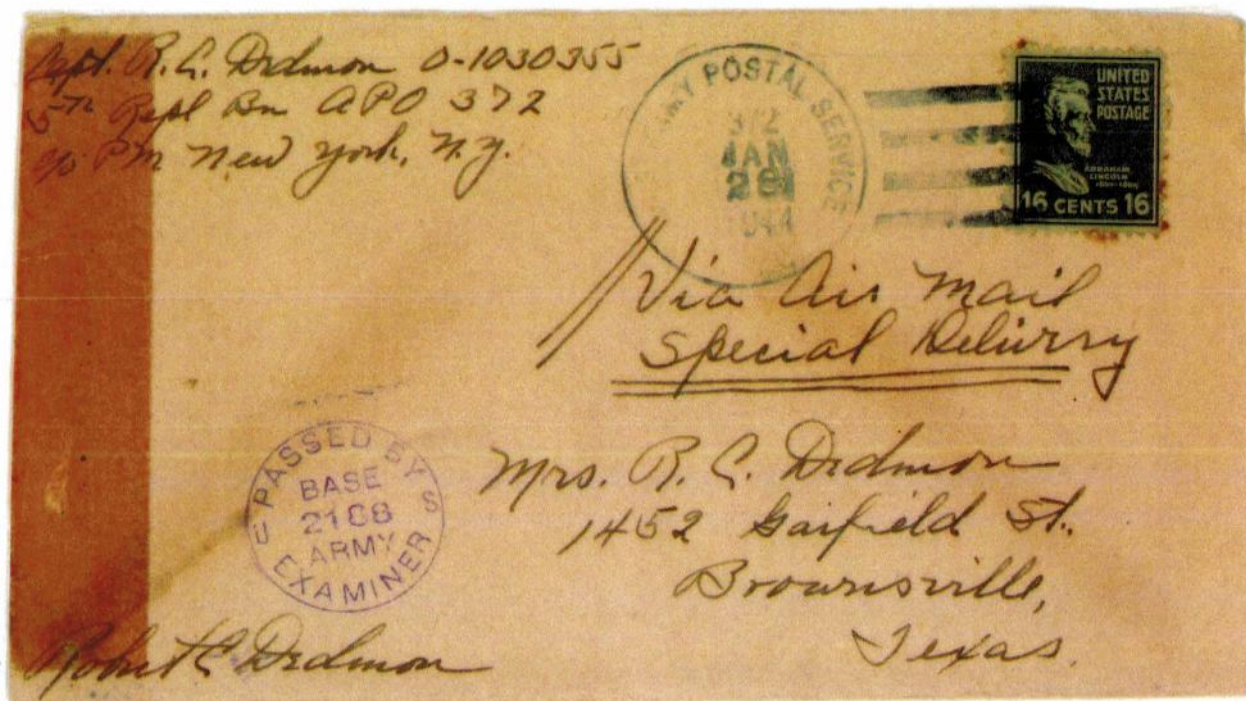 Capt. R.C. Dedmon O-1030355
5th Repl Bn APO 372
c/o PM New York, N.Y.
ARMY POSTAL SERVICE
372
JAN
28
1944
UNITED
STATES
POSTAGE
ABRAHAM
LINCOLN
1861-1865
16 CENTS 16
Via Air Mail
Special Delivery
PASSED BY
BASE
U 2188 S
ARMY
EXAMINER
Mrs. R. C. Dedmon
1452 Garfield St.
Brownsville,
Texas.
Robert C Dedmon